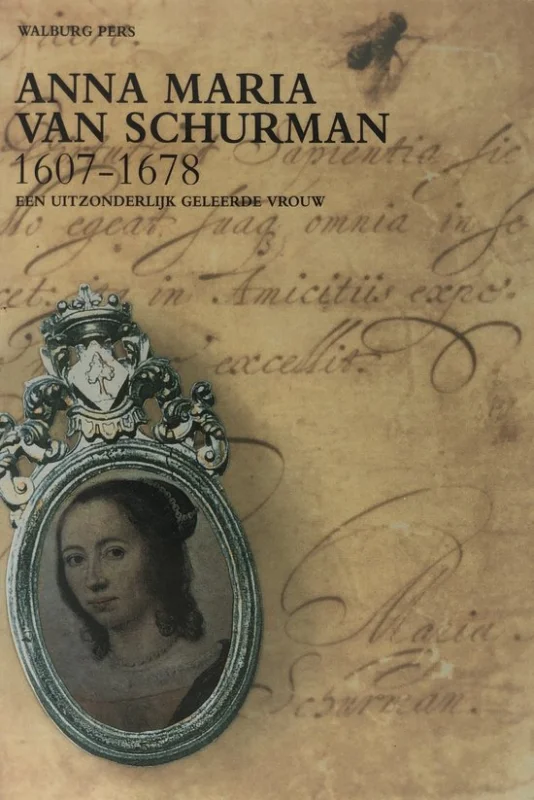 WALBURG PERS
ANNA MARIA
VAN SCHURMAN
1607–1678
EEN UITZONDERLIJK GELEERDE VROUW
Sapientia sic
egeat suaq omnia in se
in Amicitiis expo
excellit
Maria
Schurman.